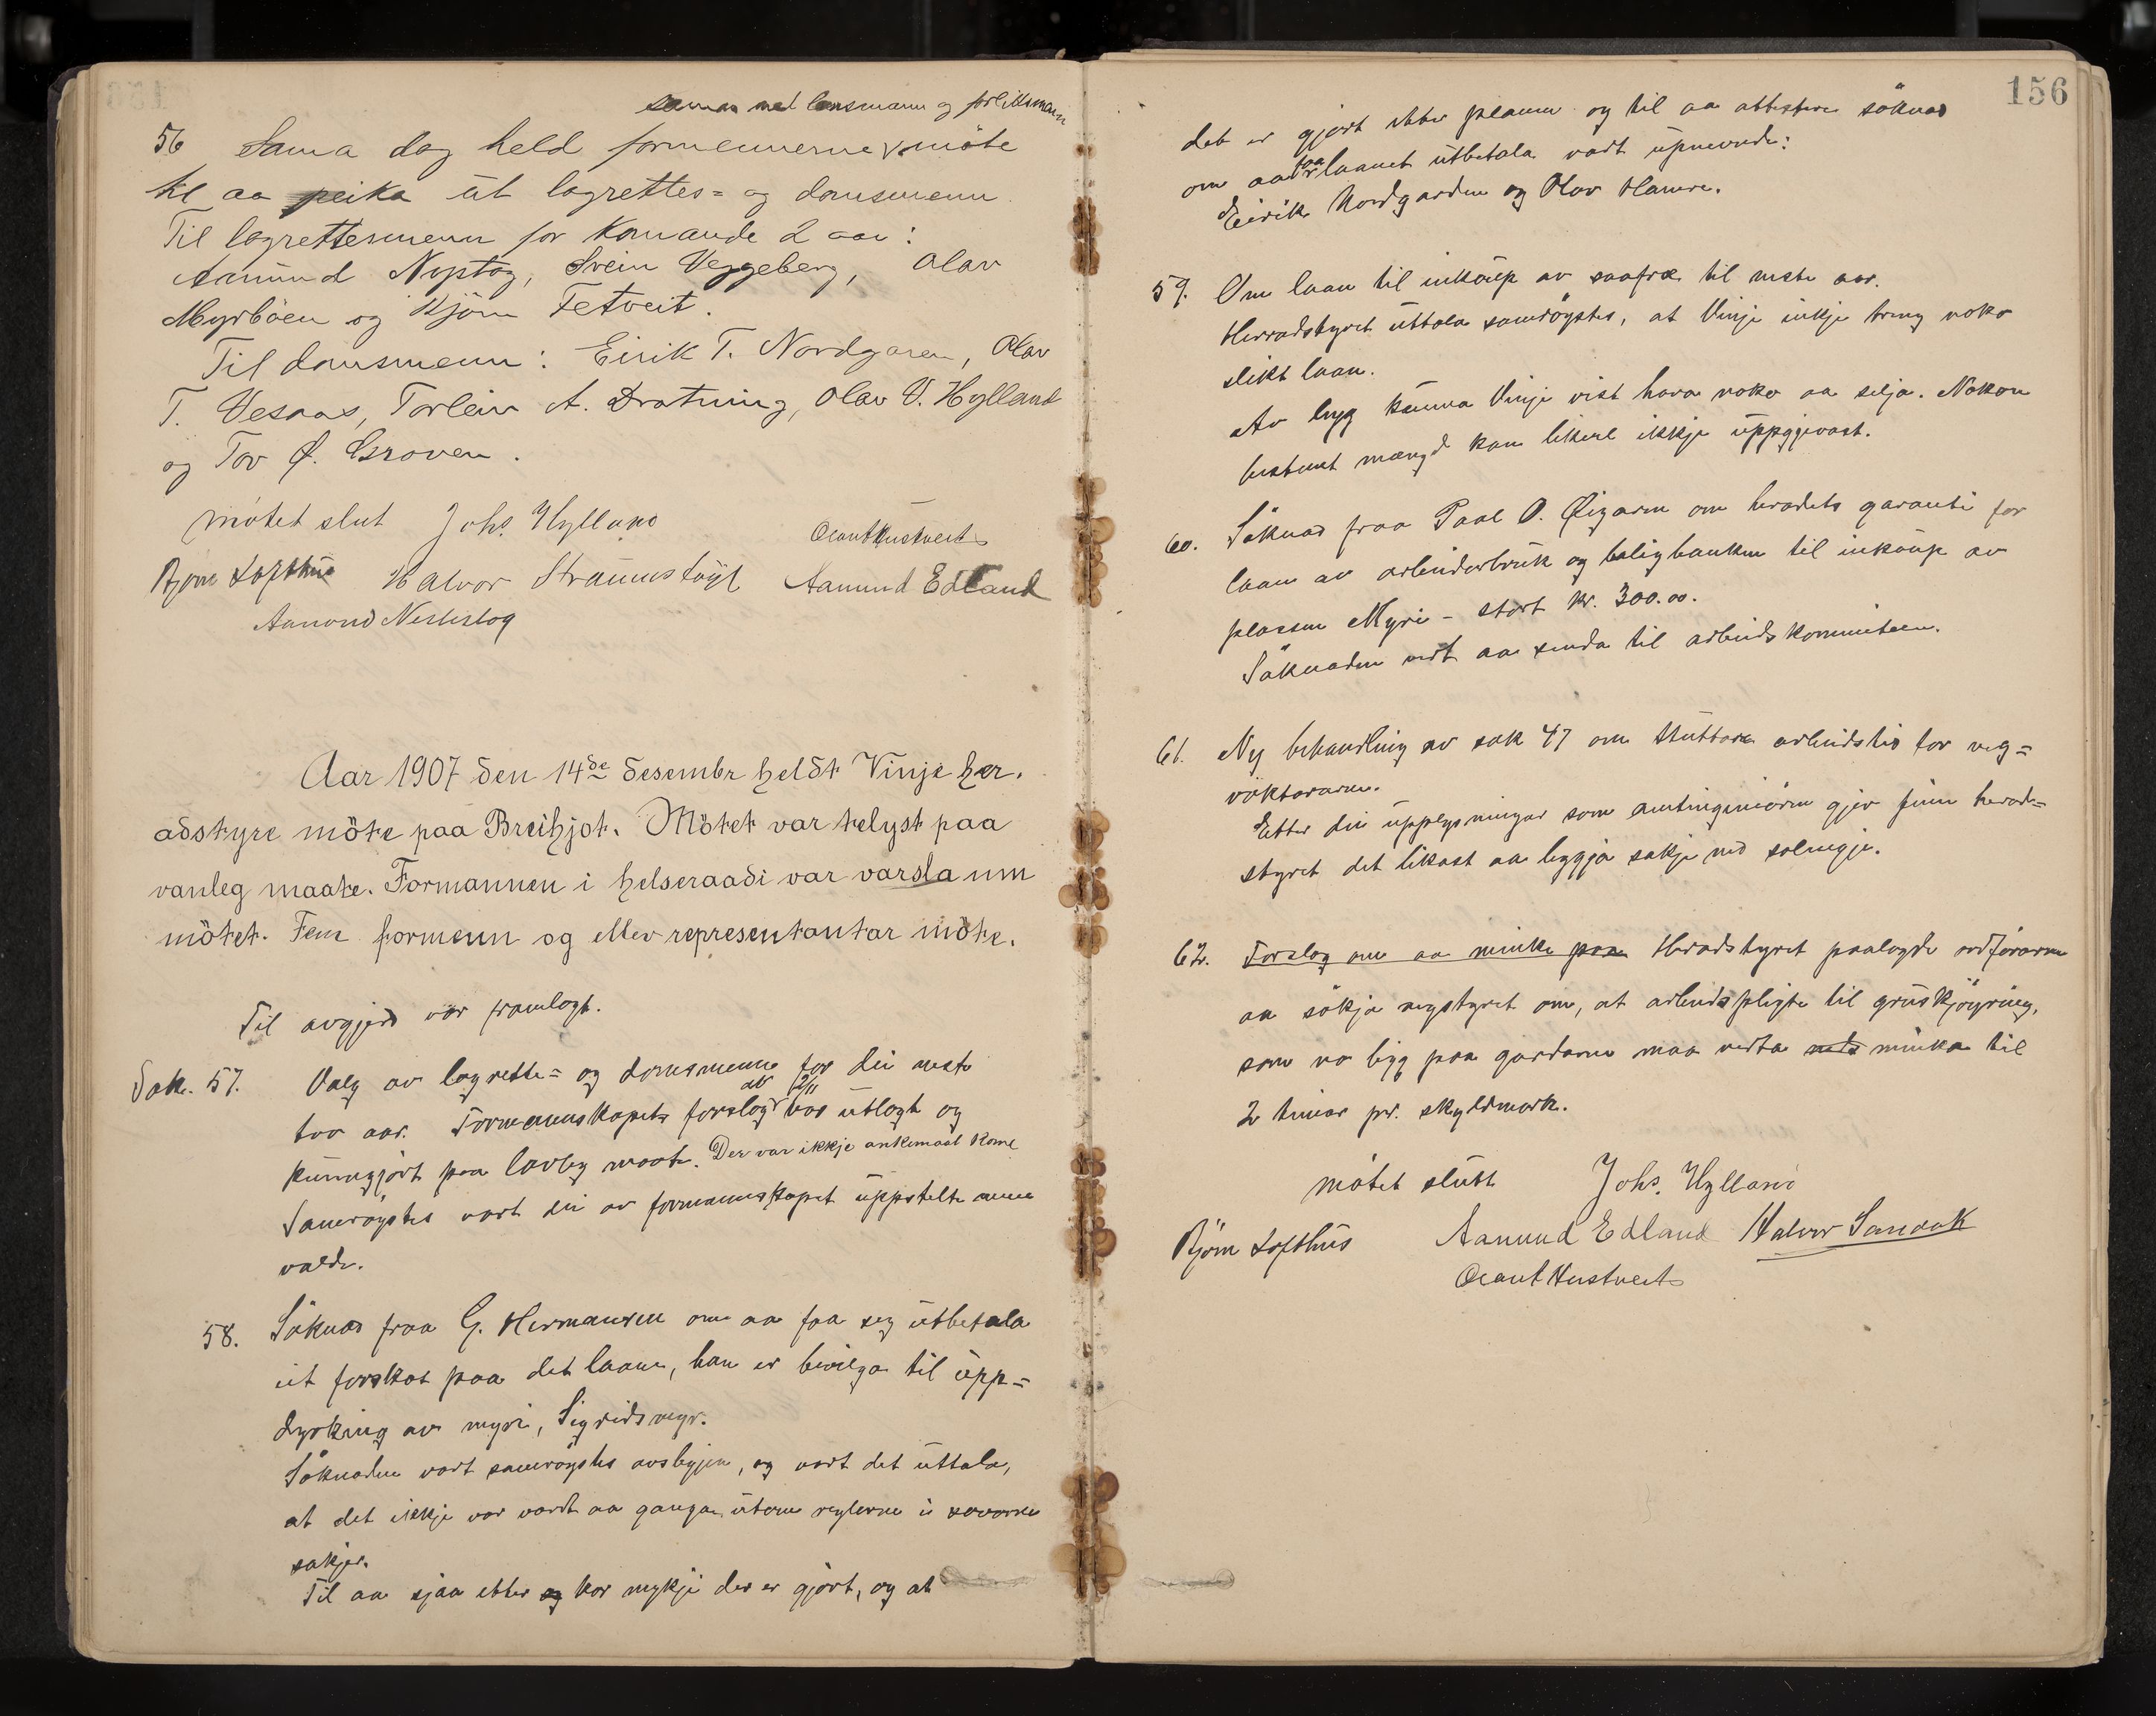 saman med lensmann og forliksmenn
56 Sama dag held formennerne möte
til aa peika ut lagrettes= og domsmenn.
Til lagrettesmenn for komande 2 aar:
Aamund Nystog, Svein Veggeberg, Olav
Myrböen og Kjöm Tetveit.
Til domsmenn: Eirik T. Nordgaren, Olav
T. Vesaas, Torleiv A. Bratning, Olav V. Hylland
og Tov Ø. Groven.
mötet slut Johs. Hylland
Björn Lofthus Halvor Straumstöyl Aamund Edland
Aamund Nesterstog
Aar 1907 den 14de desembr heldt Vinje her.
adstyre möte paa Breihjot. Mötet var telyst paa
vanleg maate. Formannen i helseraadi var varsla um
mötet. Fem formenn og ellev representantar möte.
Til avgjerd var framlagt.
Sak. 57. Valg av lagrette= og domsmenn for dei neste
tvo aar. Formannskapets forslag av 2/11 var utlagt og
kunngjort paa lovleg maate. Der var ikkje ankemaal kome
Samröystes vart dei av formannskapet uppstelte menn
valde.
58. Söknad fraa G. Hermansen om aa faa seg utbetala
eit forskot paa det laane, han er bevilga til upp=
dyrking av myri, Sigridsmyr.
Söknaden vart samröystes avslegjen, og vart det uttala,
at det ikkje var vardt aa ganga utom reglerne i saavorne
sakjer.
Til aa sjaa etter og kor mykje der er gjort, og at
156
det er gjort etter planen og til aa attestere söknad
om aa faa laanet utbetala vart upnevnde:
Eirik Nordgarden og Olav Hamre.
59. Om laan til inkaup av saafræ til neste aar.
Herradstyret uttala samröystes, at Vinje inkje treng noko
slikt laan.
Av bygg kunna Vinje vist hava noko aa selja. Nokon
bestemt mængd kan likevel ikkje uppgjevast.
60. Söknad fraa Paal O. Øigarn om heradets garanti for
laan av arbeidarbruk og boligbanken til inkaup av
plassen Myri - stort kr. 300.00.
Söknaden vert aa senda til arbeidskommiteen.
61. Ny behandling av sak 47 om stuttare arbeidstid for veg=
vöktararne.
Etter dei upplysningar som amtingeniören gjev finn herad=
styret det likast aa leggja sakje ned solengje.
62. Forslag om aa minke paa Heradstyret paalagde ordförarne
aa sökja vegstyret om, at arbeidspligte til gruskjöyring,
som no ligg paa gardarne maa verta minka til
2 timar pr. skyldmark.
mötet slutt Johs. Hylland
Björn Lofthus Aamund Edland Halvor Sandok